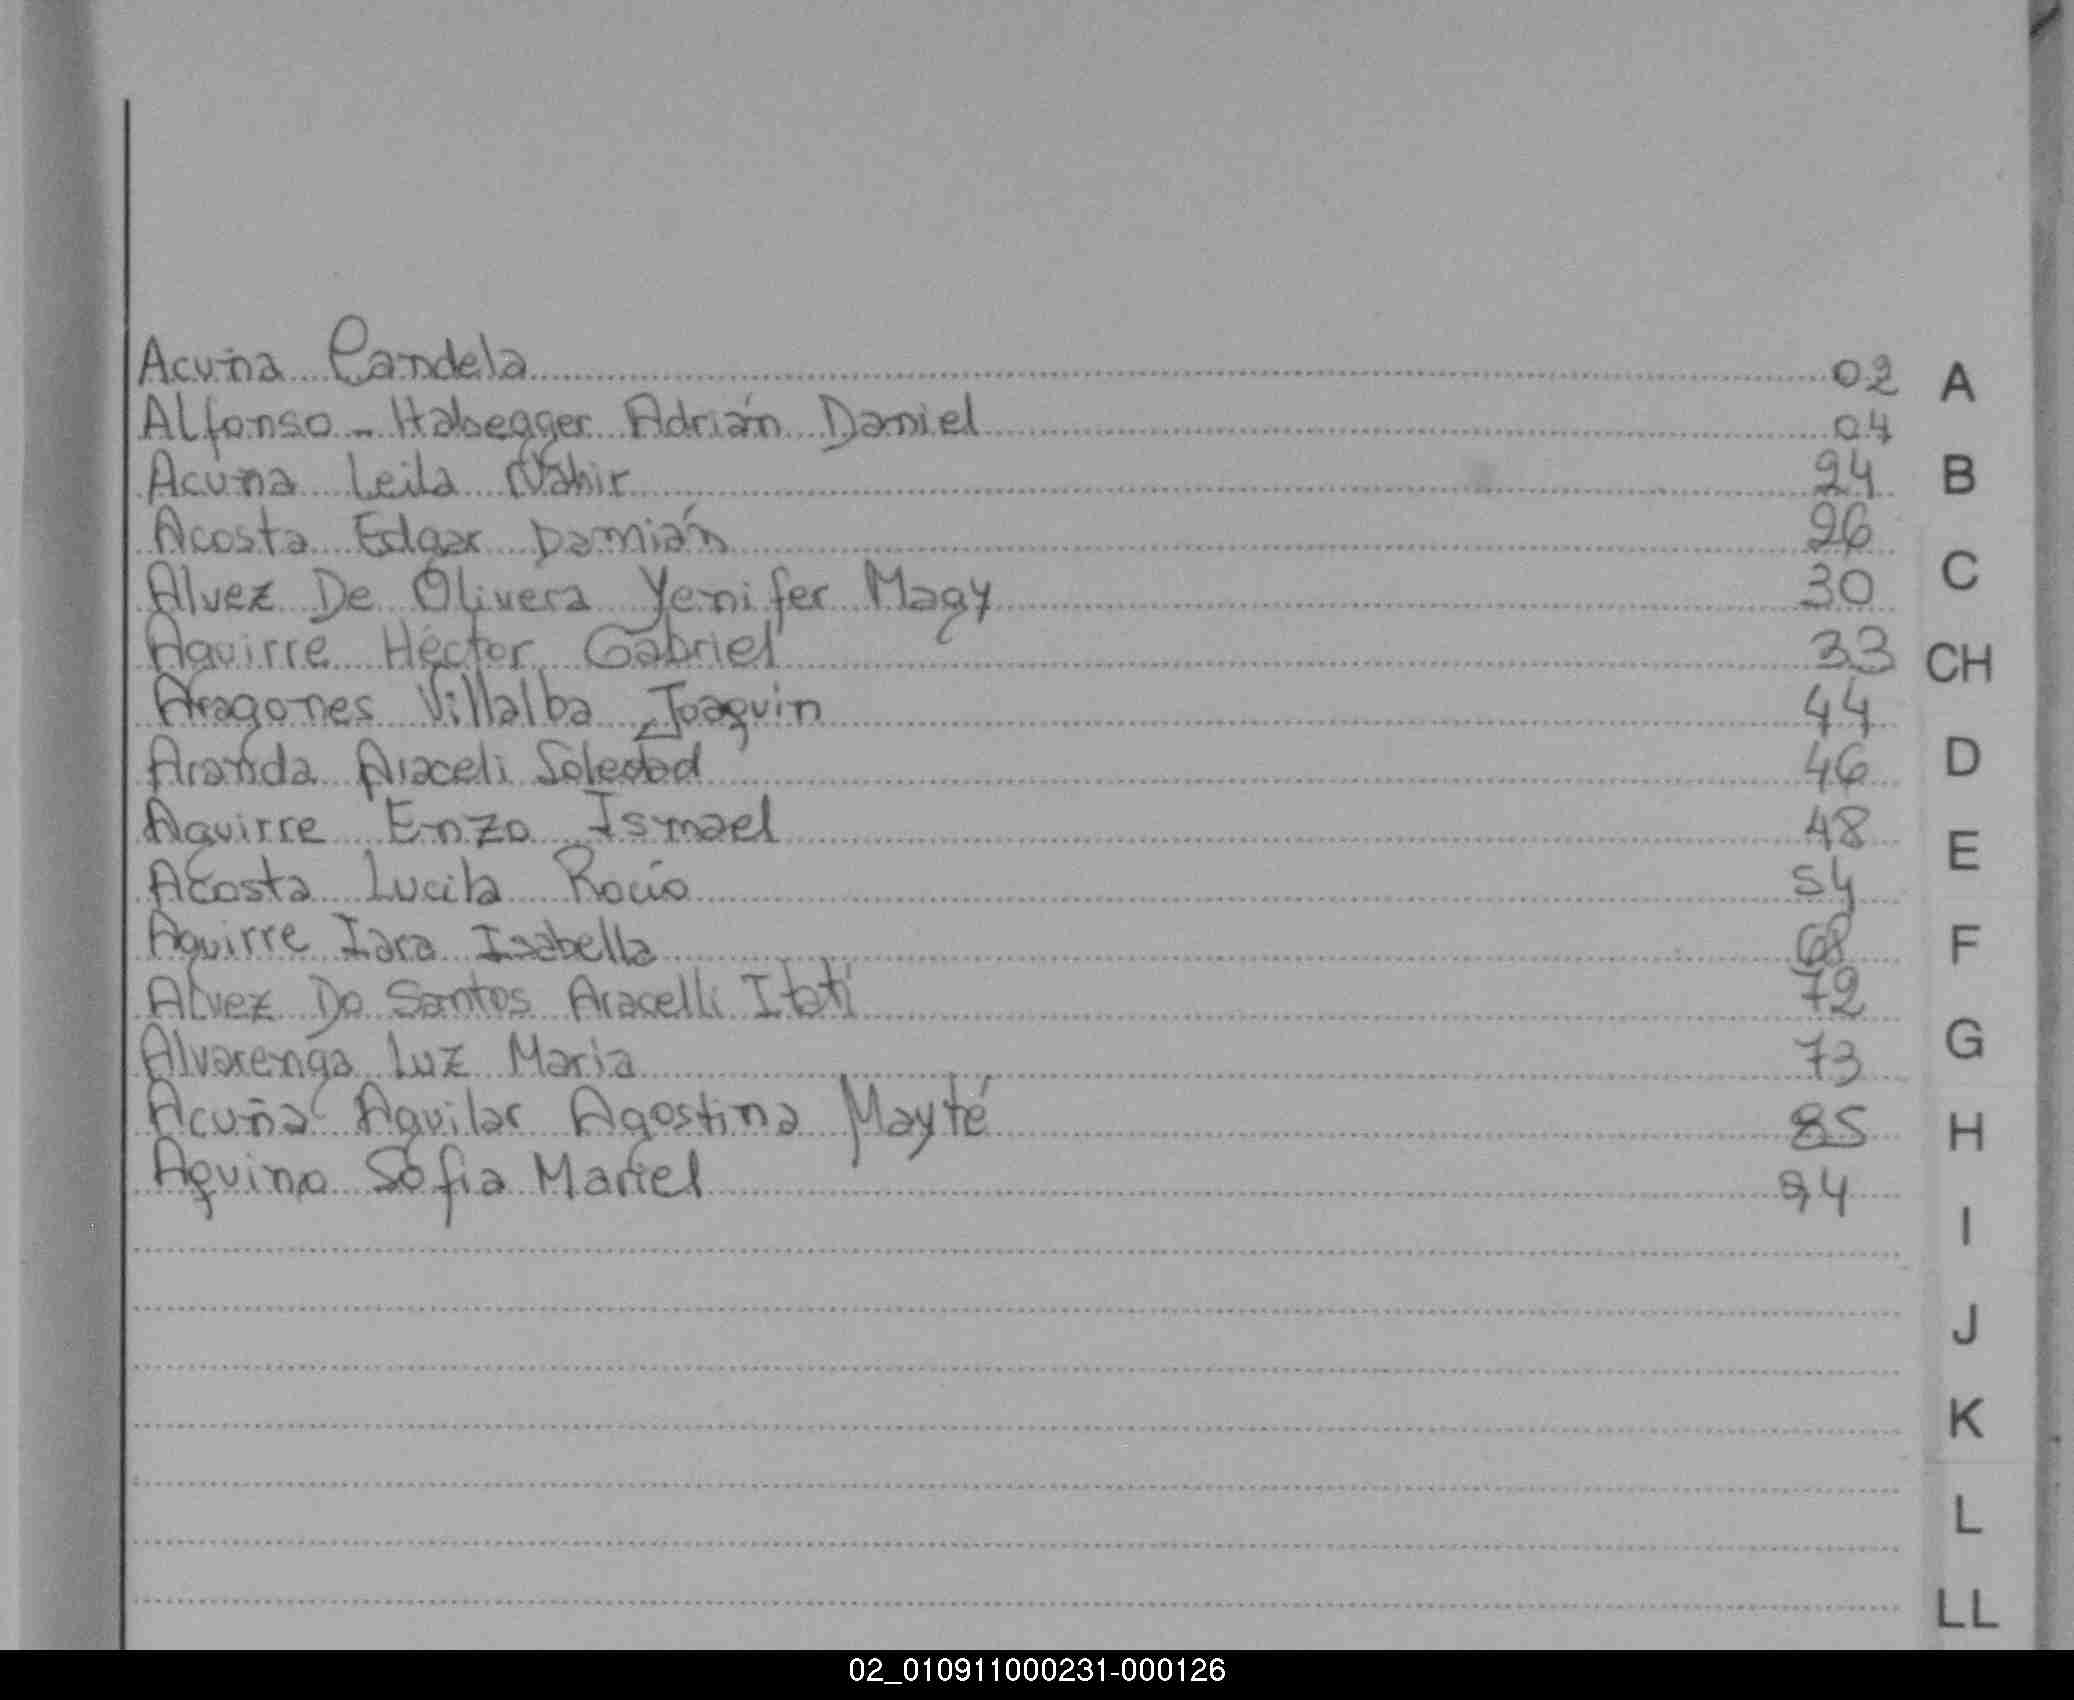 Acuña Candela 02
Alfonso - Habegger Adrián Daniel 04
Acuña Leila Nahir 24
Acosta Edgar Damián 26
Alvez De Olivera Yenifer Magy 30
Aguirre Héctor Gabriel 33
Aragones Villalba Joaquin 44
Aranda Araceli Soledad 46
Aguirre Enzo Ismael 48
Acosta Lucila Rocio 54
Aguirre Iara Isabella 68
Alvez Do Santos Aracelli Itatí 72
Alvarenga Luz Maria 73
Acuña Aguilar Agostina Mayté 85
Aquino Sofia Mariel 94
A
B
C
CH
D
E
F
G
H
I
J
K
L
LL
02_010911000231-000126